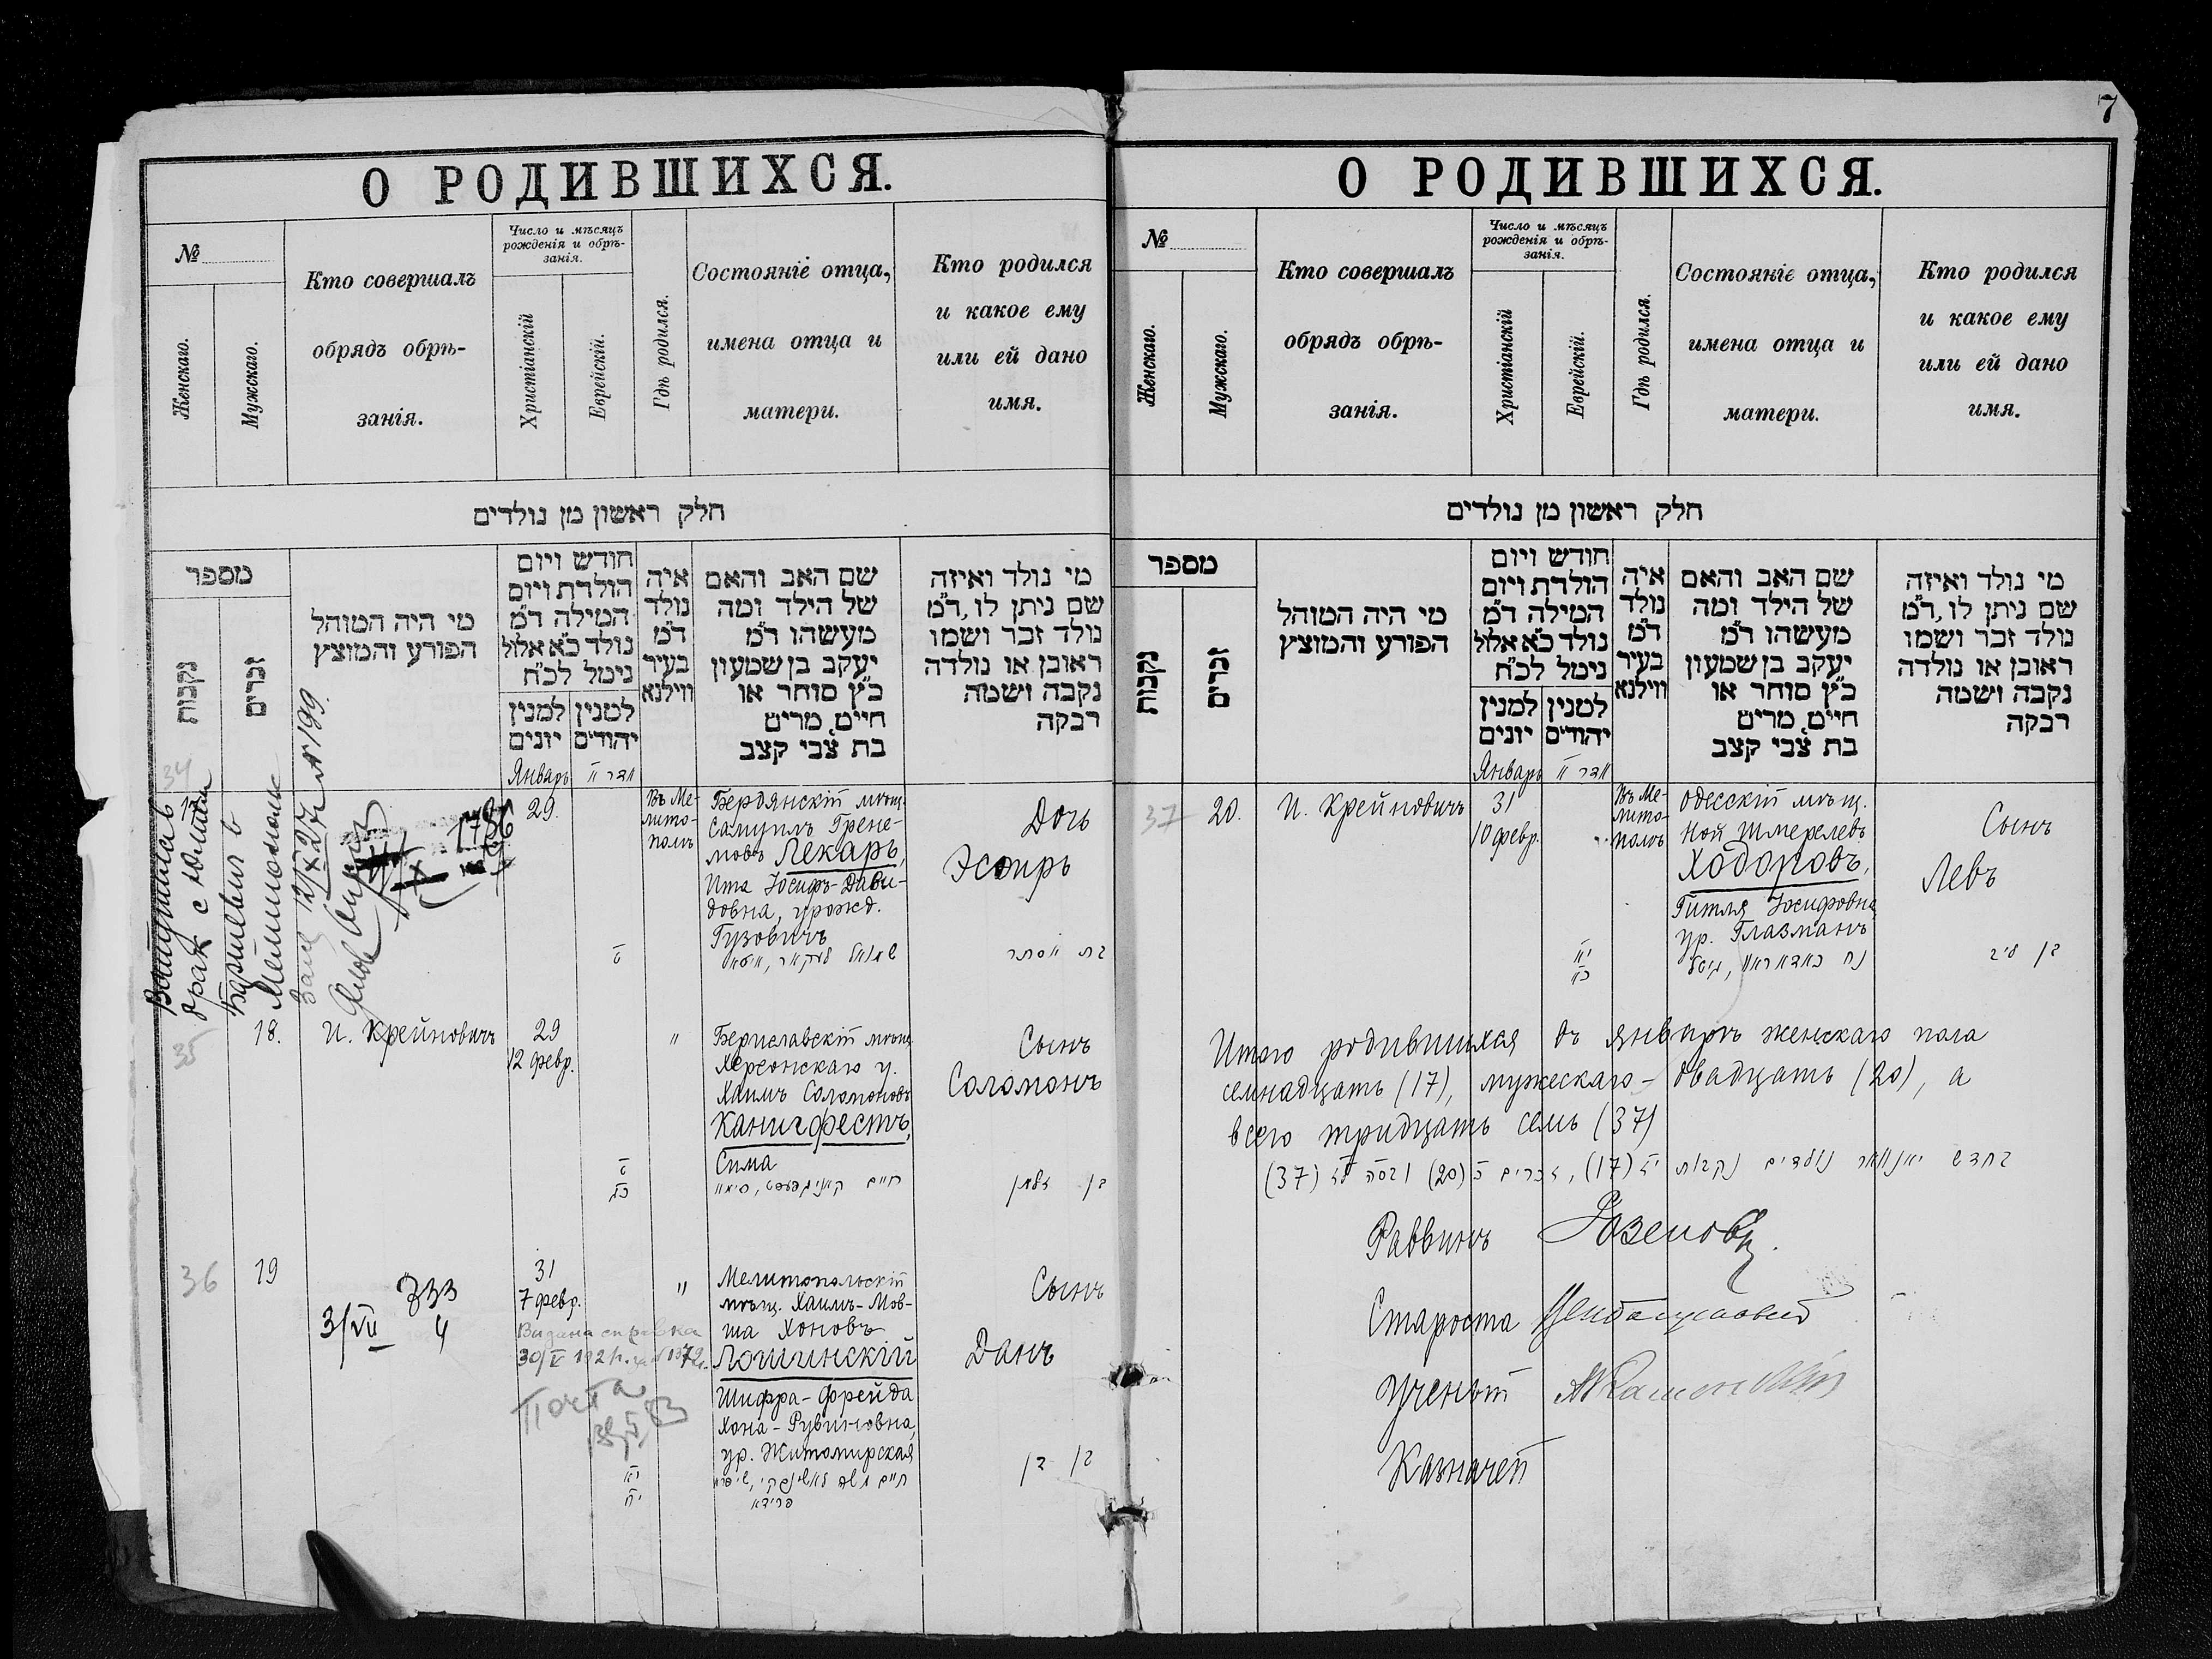 7
О РОДИВШИХСЯ.
№
Женскаго.
Мужскаго.
Кто совершалъ
обрядъ обрѣ-
занія.
Число и мѣсяцъ
рожденія и обрѣ-
занія.
Христіанскій
Еврейскій.
Гдѣ родился.
Состояніе отца,
имена отца и
матери.
Кто родился
и какое ему
или ей дано
имя.
חלק ראשון מן נולדים
מספר
נקבות
זכרים
מי היה המוהל
הפורע והמוצץ
חודש ויום
הולדת ויום
המילה ד״מ
נולד כ״א אלול
נימל לכ״ח
למנין יונים
למנין יהודים
איה
נולד
ד״מ
בעיר
ווילנא
שם האב והאם
של הילד ומה
מעשהו ד״מ
יעקב בן שמעון
כ״ץ סוחר או
חיים, מרים
בת צבי קצב
מי נולד ואיזה
שם ניתן לו, ד״מ
נולד זכר ושמו
ראובן או נולדה
נקבה ושמה
רבקה
Январь
34
17
Вступила в
брак с
Мелитополе
12/X 27 г. № 199.
1786
29.
Въ Ме-
лито-
полѣ
Бердянскій мѣщ.
Самуилъ
Лекарь,
Ита Іосифъ-Дави-
довна, урожд.
Гузовичъ
Дочь
Эсѳирь
ט
שמואל לעקאר, איטא
בת אסתר
35
18.
И. Крейновичъ
29
12 февр.
"
Бериславскій мѣщ.
Херсонскаго у.
Хаимъ Соломоновъ
Канигфестъ,
Сима
Сынъ
Соломонъ
ט
כג
חיים קאניגפעסט, סימא
בן זלמן
36
19
333
3/VII 4
31
7 февр.
Видана справка
30/V
Почта
"
Мелитопольскій
мѣщ. Хаимъ-Мов-
ша Хоновъ
Лошинскій
Шифра-Фрейда
Хона-Рувиновна,
ур. Житомирская
Сынъ
Данъ
יא
יח
חיים משה לאשינסקי, שיפרא
פרידא
בן דן
О РОДИВШИХСЯ.
№
Женскаго.
Мужскаго.
Кто совершалъ
обрядъ обрѣ-
занія.
Число и мѣсяцъ
рожденія и обрѣ-
занія.
Христіанскій
Еврейскій.
Гдѣ родился.
Состояніе отца,
имена отца и
матери.
Кто родился
и какое ему
или ей дано
имя.
חלק ראשון מן נולדים
מספר
נקבות
זכרים
מי היה המוהל
הפורע והמוצץ
חודש ויום
הולדת ויום
המילה ד״מ
נולד כ״א אלול
נימל לכ״ח
למנין יונים
למנין יהודים
איה
נולד
ד״מ
בעיר
ווילנא
שם האב והאם
של הילד ומה
מעשהו ד״מ
יעקב בן שמעון
כ״ץ סוחר או
חיים, מרים
בת צבי קצב
מי נולד ואיזה
שם ניתן לו, ד״מ
נולד זכר ושמו
ראובן או נולדה
נקבה ושמה
רבקה
Январь
37
20.
И. Крейновичъ
31
10 февр.
Въ Ме-
лито-
полѣ
Одесскій мѣщ.
Ной Шмерелевъ
Ходоровъ,
Гитля Іосифовна
ур. Глазманъ
Сынъ
Левъ
יא
כא
נח כאדאראוו, גיטל
בן ליב
Итого родившихся въ январѣ женскаго пола
семнадцать (17), мужескаго - двадцать (20), а
всего тридцать семь (37)
בחדש יאנוואר נולדים נקבות יז (17), זכרים כ (20) ובסה לז (37)
Раввинъ
Староста
Ученый
Казначей